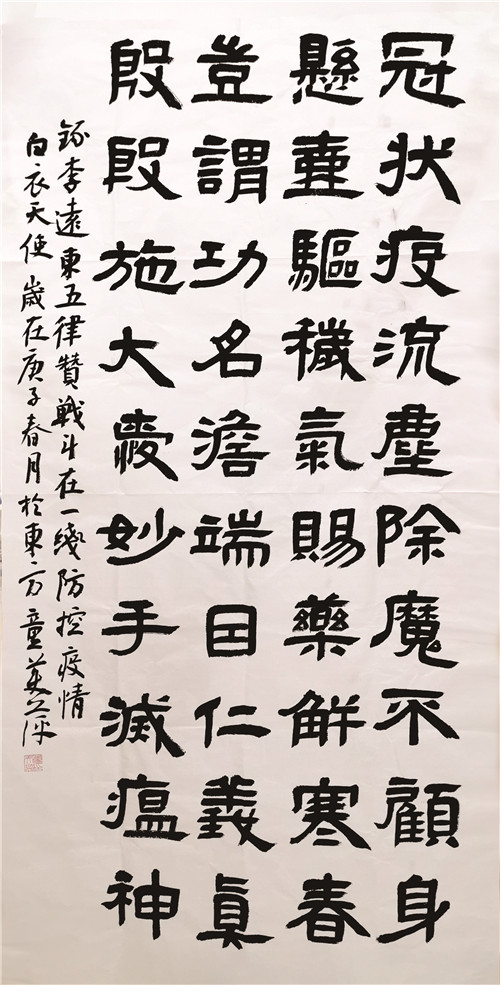 冠状疫流塵除魔不顧身
懸壺驅穢氣賜藥解寒春
豈謂功名澹端因仁義眞
殷殷施大愛妙手滅瘟神
錄李遠東五律贊戰斗在一綫防控疫情
白衣天使 歲在庚子春月於東方童